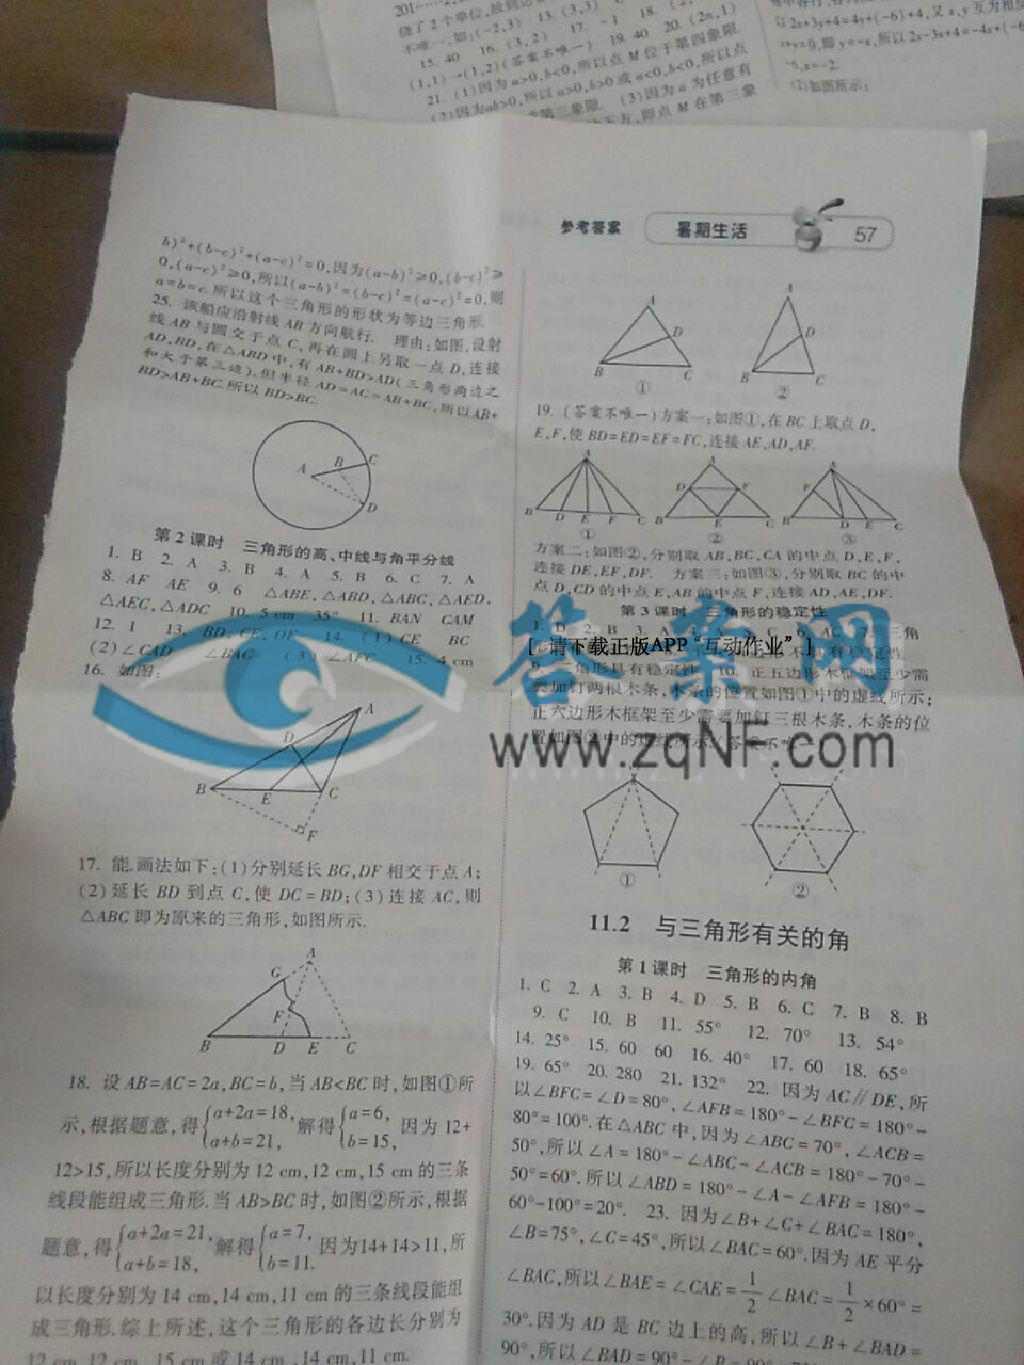 201……2,
绕了2个单位,故到达
不唯一,如:(-2,3) 13. (3,3)
15. 40 16. (3,2) 17. -1 18. (2,
(1,1)→(1,2)(答案不唯一) 19. 40 20. (2n,1)
21. (1)因为a>0,b<0,所以点M位于第四象限.
(2)因为ab>0,所以a>0,b>0或a<0,b<0,所以点
在第三象限. (3)因为a为任意有
下方,即点M在第三象
以2x+3y+4=4y+(-6)+4,又x,y互为相反
=y=0,即y=-x,所以2x-3x+4=-4x+(-6
(2)如图所示:
参考答案 暑期生活 57
b)²+(b-c)²+(a-c)²=0,因为(a-b)²≥0,(b-c)²≥
0,(a-c)²≥0,所以(a-b)²=(b-c)²=(a-c)²=0,则
a=b=c.所以这个三角形的形状为等边三角形.
25. 该船应沿射线AB方向航行. 理由:如图,设射
线AB与圆交于点C,再在圆上另取一点D,连接
AD,BD,在△ABD中,有AB+BD>AD(三角形两边之
和大于第三边),但半径AD=AC=AB+BC,所以AB+
BD>AB+BC.所以BD>BC.
A B C
D
第2课时 三角形的高、中线与角平分线
1. B 2. A 3. B 4. A 5. B 6. C 7. A
8. AF AE 9. 6 △ABE,△ABD,△ABG,△AED,
△AEC,△ADC 10. 5 cm 35° 11. BAN CAM
12. 1 13. BD,CE,OF 14. (1)CE BC
(2)∠CAD ∠BAC (3)∠AFC 15. 4 cm
16. 如图:
A
D
B E C
F
17. 能.画法如下:(1)分别延长BG,DF相交于点A;
(2)延长BD到点C,使DC=BD;(3)连接AC,则
△ABC即为原来的三角形,如图所示.
A
G
F
B D E C
18. 设AB=AC=2a,BC=b,当AB<BC时,如图①所
示,根据题意,得{a+2a=18, a+b=21, 解得{a=6, b=15, 因为12+
12>15,所以长度分别为12 cm,12 cm,15 cm的三条
线段能组成三角形.当AB>BC时,如图②所示,根据
题意,得{a+2a=21, a+b=18, 解得{a=7, b=11. 因为14+14>11,所
以长度分别为14 cm,14 cm,11 cm的三条线段能组
成三角形.综上所述,这个三角形的各边长分别为
12 cm,12 cm,15 cm或14 cm,14 cm,11 cm.
A A
D D
B C B C
① ②
19. (答案不唯一)方案一:如图①,在BC上取点D,
E,F,使BD=ED=EF=FC,连接AE,AD,AF.
A A A
D F F E
B D E F C B E C B D C
① ② ③
方案二:如图②,分别取AB,BC,CA的中点D,E,F,
连接DE,EF,DF. 方案三:如图③,分别取BC的中
点D,CD的中点E,AB的中点F,连接AD,AE,DF.
第3课时 三角形的稳定性
1. D 2. B 3. A C 6. AC 7. 三角
[ 请下载正版APP“互动作业” ]
9. 三角形具有稳定性 10. 正五边形木框架至少需
要加钉两根木条,木条的位置如图①中的虚线所示;
正六边形木框架至少需要加钉三根木条,木条的位
置如图②中的虚线所示.(答案不唯一)
答案网
www.zqNF.com
① ②
11.2 与三角形有关的角
第1课时 三角形的内角
1. C 2. A 3. B 4. D 5. B 6. C 7. B 8. B
9. C 10. B 11. 55° 12. 70° 13. 54°
14. 25° 15. 60 60 16. 40° 17. 60 18. 65°
19. 65° 20. 280 21. 132° 22. 因为AC∥DE,所
以∠BFC=∠D=80°,∠AFB=180°-∠BFC=180°-
80°=100°.在△ABC中,因为∠ABC=70°,∠ACB=
50°,所以∠A=180°-∠ABC-∠ACB=180°-70°-
50°=60°.所以∠ABD=180°-∠A-∠AFB=180°-
60°-100°=20°. 23. 因为∠B+∠C+∠BAC=180°,
∠B=75°,∠C=45°,所以∠BAC=60°.因为AE平分
∠BAC,所以∠BAE=∠CAE=1/2∠BAC=1/2×60°=
30°.因为AD是BC边上的高,所以∠B+∠BAD=
90°,所以∠BAD=90°-∠B=90°